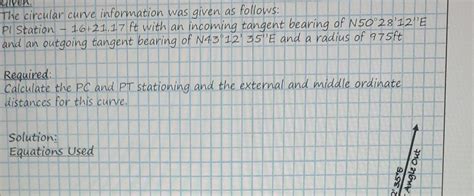 Given:
The circular curve information was given as follows:
PI Station - 16+21.17 ft with an incoming tangent bearing of N50°28'12"E
and an outgoing tangent bearing of N43°12'35"E and a radius of 975ft
Required:
Calculate the PC and PT stationing and the external and middle ordinate
distances for this curve.
Solution:
Equations Used
2'35"E
Angle Out